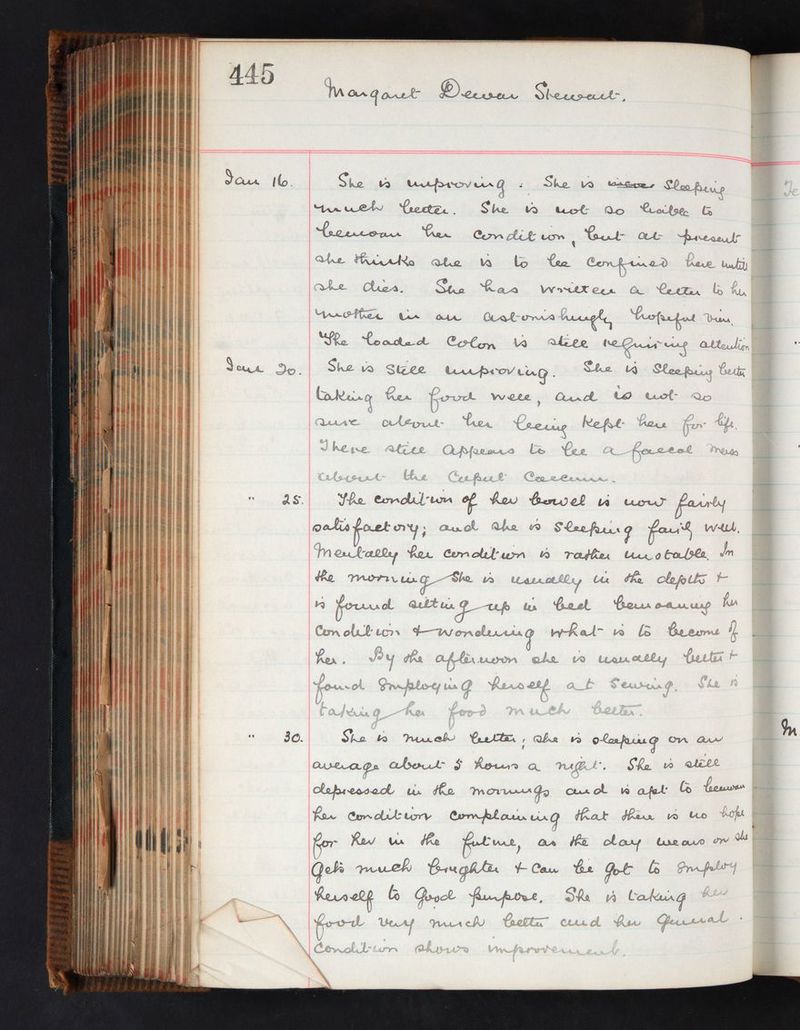 445
Margaret Dewar Stewart.
Jan 16. She is improving. She is sleeping
much better. She is not so liable to
bemoan her condition, but at present
she thinks she is to be confined here until
she dies. She has written a letter to her
mother in an astonishingly hopeful vein.
The loaded colon is still requiring attention
Jan 20. She is still improving. She is sleeping better
taking her food well, and is not so
sure about her being kept here for life.
There still appears to be a faecal mass
about the Caput Caecum.
" 25. The condition of her bowel is now fairly
satisfactory; and she is sleeping fairly well.
Mentally her condition is rather unstable. In
the morning she is usually in the depths +
is found sitting up in bed bemoaning her
condition + wondering what is to become of
her. By the afternoon she is usually better +
found employing herself at sewing. She is
taking her food much better.
" 30. She is much better; she is sleeping on an
average about 5 hours a night. She is still
depressed in the mornings and is apt to bemoan
her condition complaining that there is no hope
for her in the future, as the day wears on she
gets much brighter + can be got to employ
herself to good purpose. She is taking her
food very much better and her general
condition shows improvement.